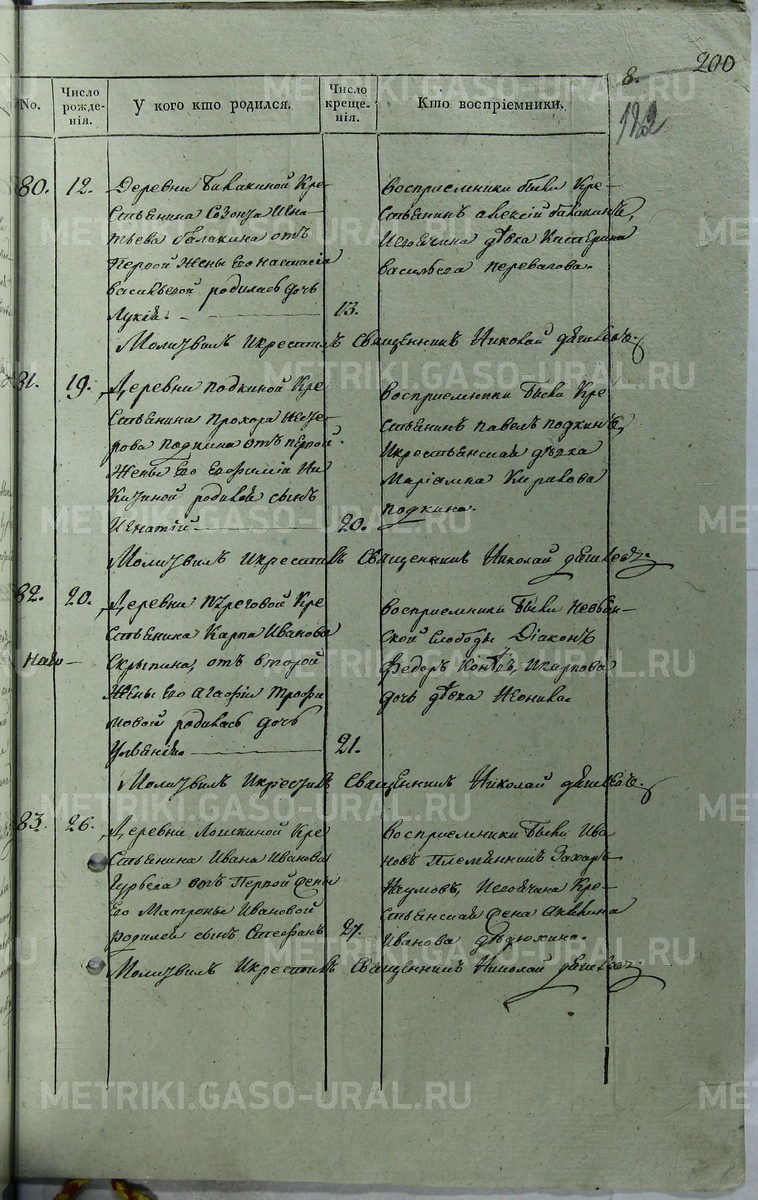 8. 200
182
No.
Число рожденія.
У кого кто родился.
Число крещенія.
Кто воспріемники.
80. 12. Деревни Балакиной Кре-
стьянина Созонта Игна-
тьева балакина отъ
первой жены его настасіи
васильевой родилась дочь
Лукія. 13.
восприемники были Кре-
стьянинъ алексій балакинъ,
дѣвка Катерина
васильева перевалова.
Молитвилъ Икрестилъ Священникъ Николай
81. 19. Деревни подкиной Кре
стьянина прохора
подкина отъ первой
жены его евфиміи Ни
китиной родился сынъ
Игнатій 20.
восприемники были Кре
стьянинъ павелъ подкинъ,
Икрестьянская дѣвка
Маріамна Кирилова
подкина.
Молитвилъ Икрестилъ Священникъ Николай
82. 20. Деревни Кре
стьянина Карпа Иванова
Скрыпина, отъ второй
жены его агафіи трофи
мовой родилась дочь
21.
восприемники были Невьян-
ской Слободы Діаконъ
Федоръ Икарпова
дочь дѣвка
Молитвилъ Икрестилъ Священникъ Николай
83. 26. Деревни Кре
стьянина Ивана Иванова
отъ Первой жены
его Матроны Ивановой
родился сынъ Стефанъ 27.
восприемники были Ива
новъ Племянникъ Захаръ
Наумовъ, Кре-
стьянская жена Акилина
Иванова
Молитвилъ Икрестилъ Священникъ Николай
METRIKI.GASO-URAL.RU